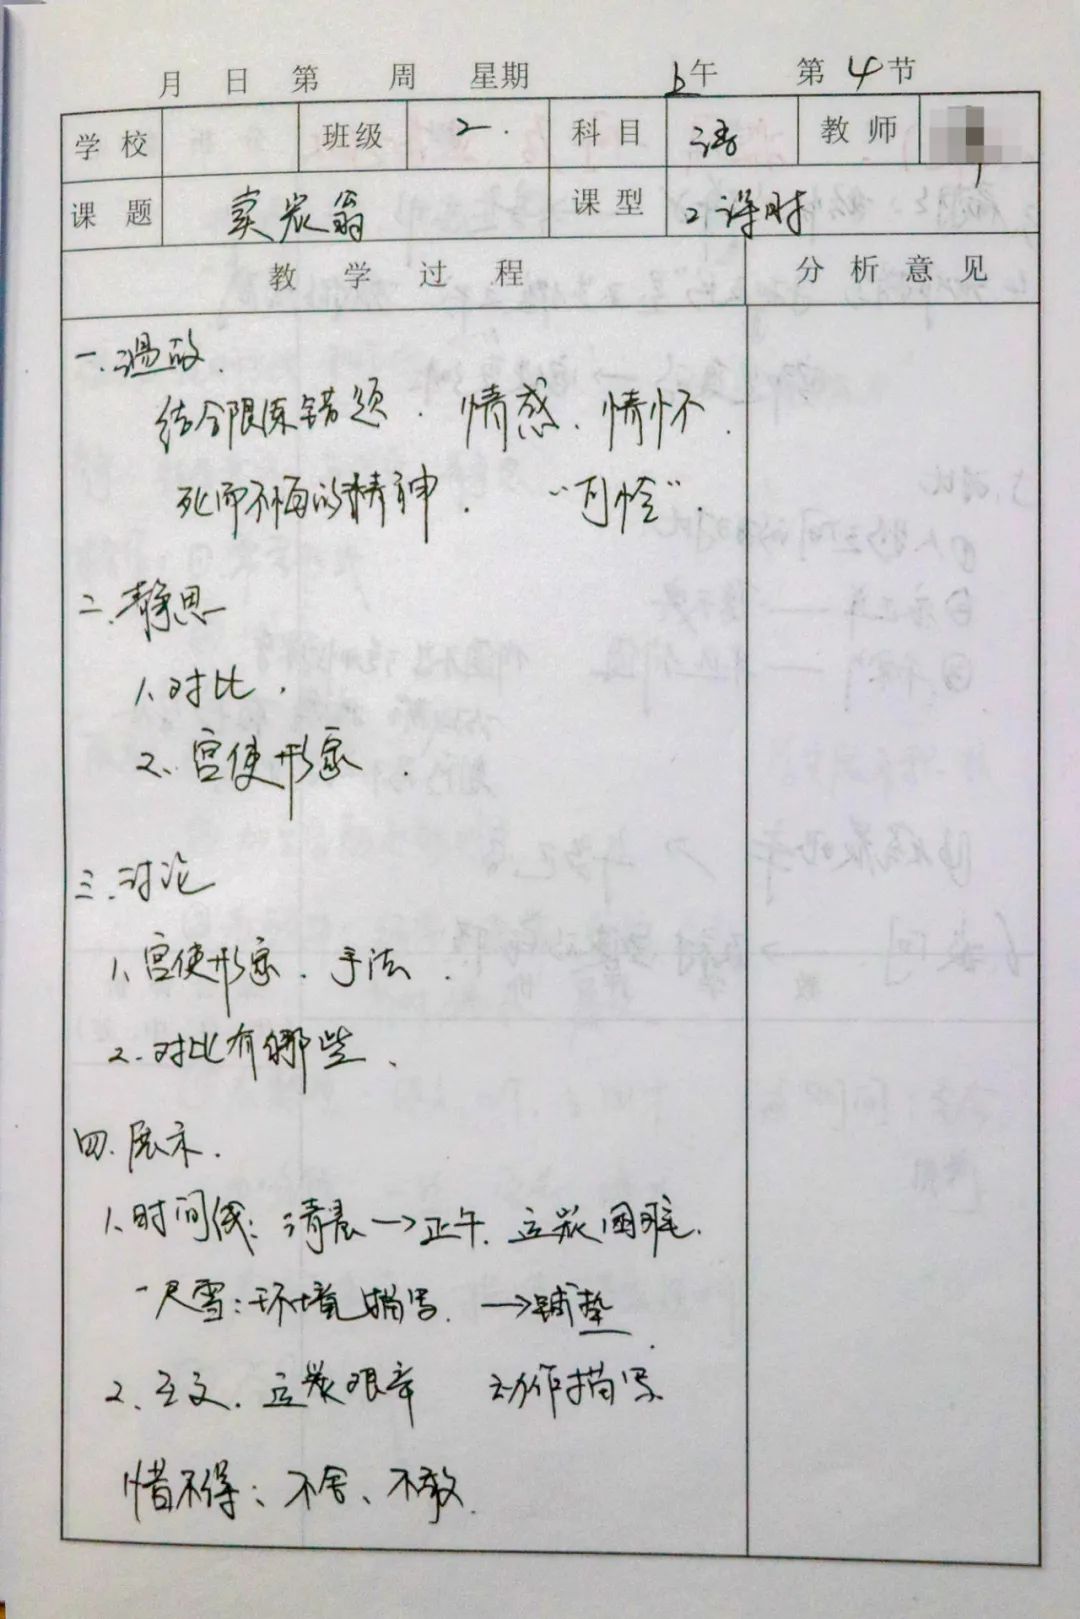 月 日 第 周 星期 上午 第 4 节
学校 班级 2. 科目 语 教师
课题 卖炭翁 课型 2课时
教学过程 分析意见
一.温故.
结合限练错题. 情感、情怀.
死而不悔的精神. “可怜”.
二.静思
1.对比.
2.宫使形象.
三.讨论
1.宫使形象.手法.
2.对比有哪些.
四.展示.
1.时间线:清晨→正午.运炭困难.
一尺雪:环境描写.→铺垫.
2.主文.运炭艰辛 动作描写
惜不得:不舍、不敢.